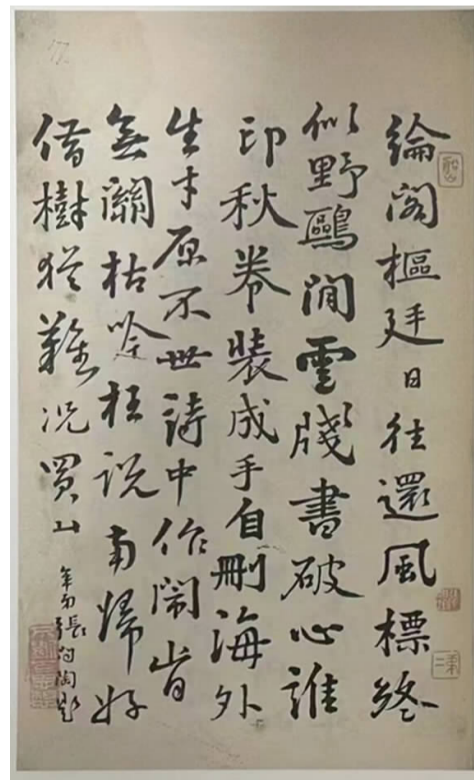 綸閣樞廷日往還風標終
似野鷗閒雲牋書破心誰
印秋卷裝成手自刪海外
生才原不世詩中作鬧皆
無關枯吟枉說南歸好
借樹猶難況買山
年勿張問陶題